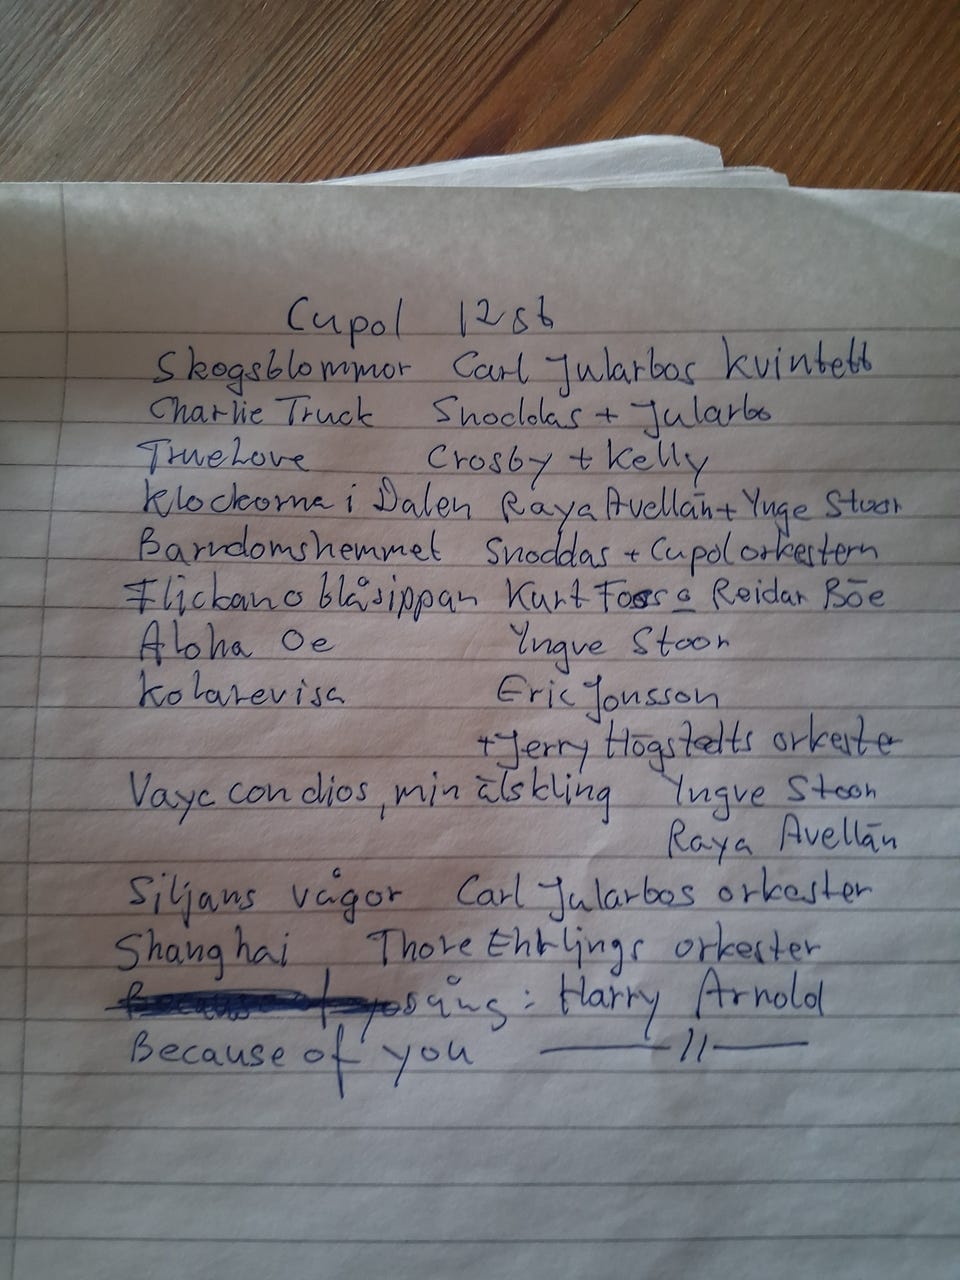 Cupol 12st
Skogsblommor Carl Jularbos kvintett
Charlie Truck Snoddas + Jularbo
True Love Crosby + Kelly
Klockorna i Dalen Raya Avellän + Ynge Stoor
Barndomshemmet Snoddas + Cupolorkestern
Flickan o blåsippan Kurt Foss o Reidar Böe
Aloha Oe Yngve Stoor
Kolarevisa Eric Jonsson
+ Jerry Högstedts orkeste
Vaya con dios, min älskling Yngve Stoor
Raya Avellän
Siljans vågor Carl Jularbos orkester
Shanghai Thore Ehrlings orkester
sång: Harry Arnold
Because of you —— 11 ——